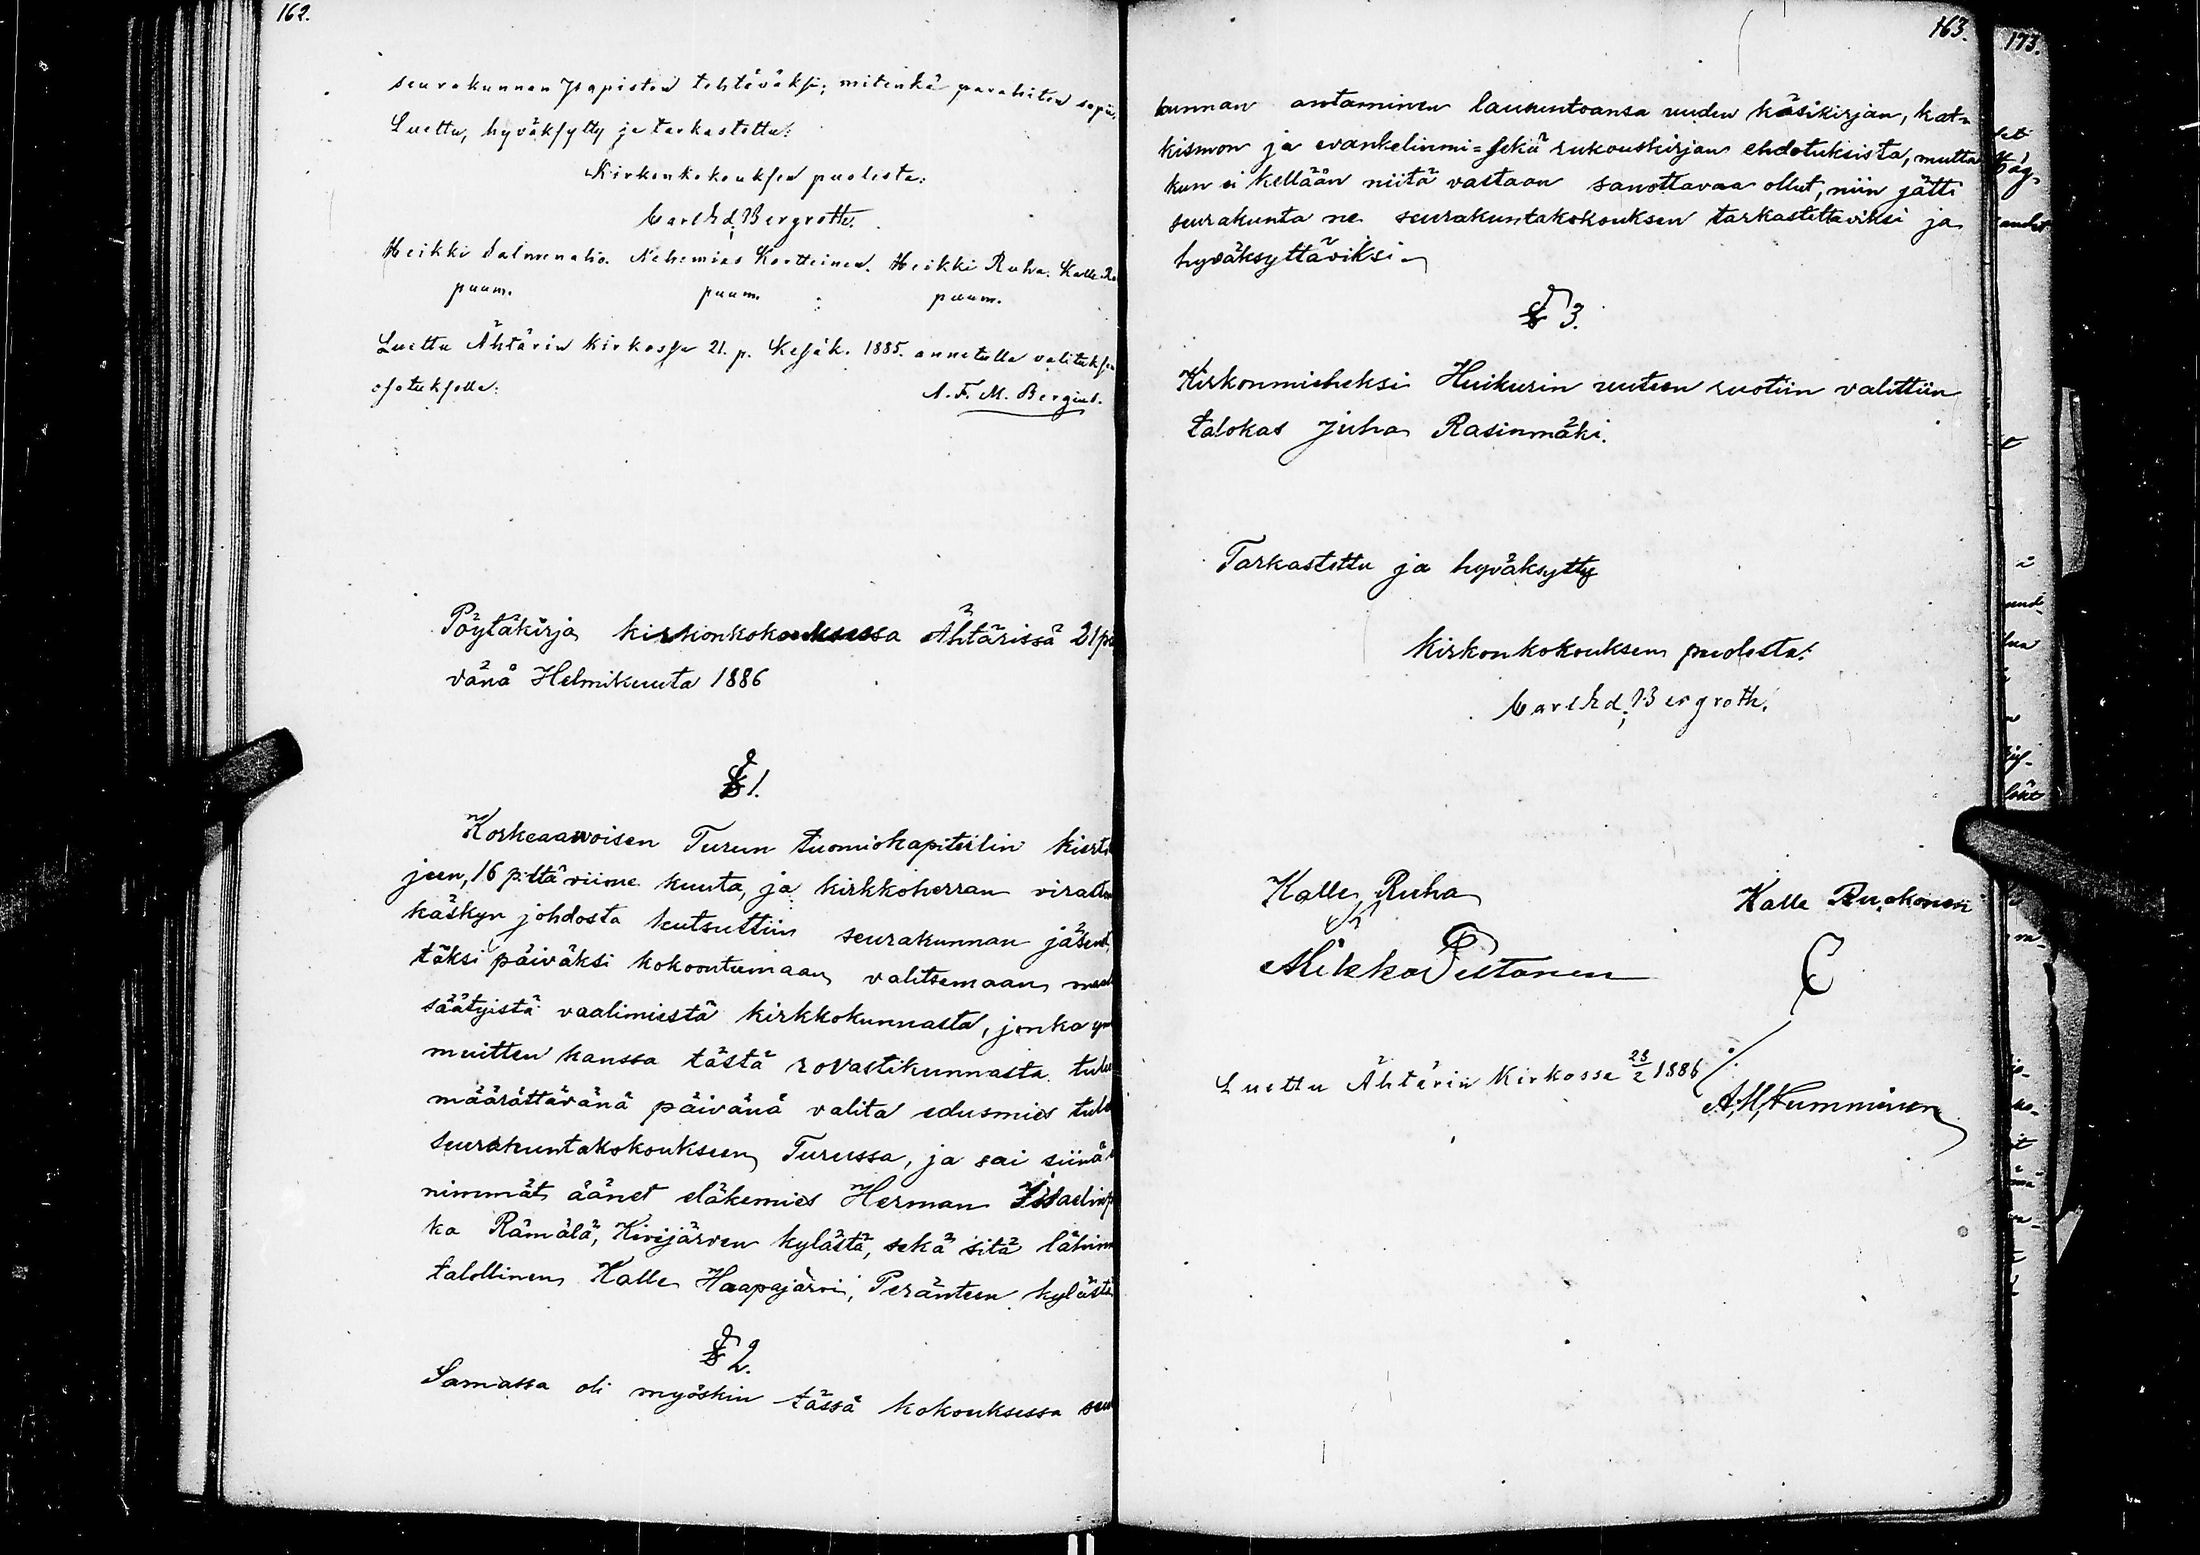 162.
seurakunnan papiston tehtäväksi, mitenkä parahiten sopii.
Luettu, hyväksytty ja tarkastettu:
Kirkonkokouksen puolesta:
Carl Ed. Bergroth.
Heikki Salmenaho. Nehemias Kortteinen. Heikki Ruha. Kalle
puum. puum. puum.
Luettu Ähtärin kirkossa 21. p. Kesäk. 1885. annetulla valituksen
osotuksella:
A. F. M. Bergius.
Pöytäkirja kirkonkokouksessa Ähtärissä 21 päi
vänä Helmikuuta 1886
§ 1.
Korkeaarvoisen Turun tuomiokapitulin kierto
jeen, 16 p:ltä viime kuuta, ja kirkkoherran virallisen
käskyn johdosta kutsuttiin seurakunnan jäsenet
täksi päiväksi kokoontumaan valitsemaan
säätyistä vaalimiestä kirkkokunnasta, jonka
muitten kanssa tästä rovastikunnasta tulee
määrättävänä päivänä valita edusmies
seurakuntakokoukseen Turussa, ja sai siinä
nimmät äänet eläkemies Herman Iisaelinp
ka Rämälä, Kivijärven kylästä, sekä sitä lähinn
talollinen Kalle Haapajärvi, Peränteen kylästä
§ 2.
Samassa oli myöskin tässä kokouksessa seu
163.
kunnan antaminen lausuntoansa uuden käsikirjan, kat-
kismon ja evankeliumi= sekä rukouskirjan ehdotuksista, mutta
kun ei kellään niitä vastaan sanottavaa ollut, niin jätti
seurakunta ne seurakuntakokouksen tarkastettaviksi ja
hyväksyttäviksi.
§ 3.
Kirkonmieheksi Huikurin uuteen ruotiin valittiin
talokas Juha Rasinmäki.
Tarkastettu ja hyväksytty
kirkonkokouksen puolesta:
Carl Ed. Bergroth.
Kalle Ruha Kalle Ruokonen
Mikko Peltonen
Luettu Ähtärin kirkossa 28/2 1886 ./.
A. H. Numminen
173.